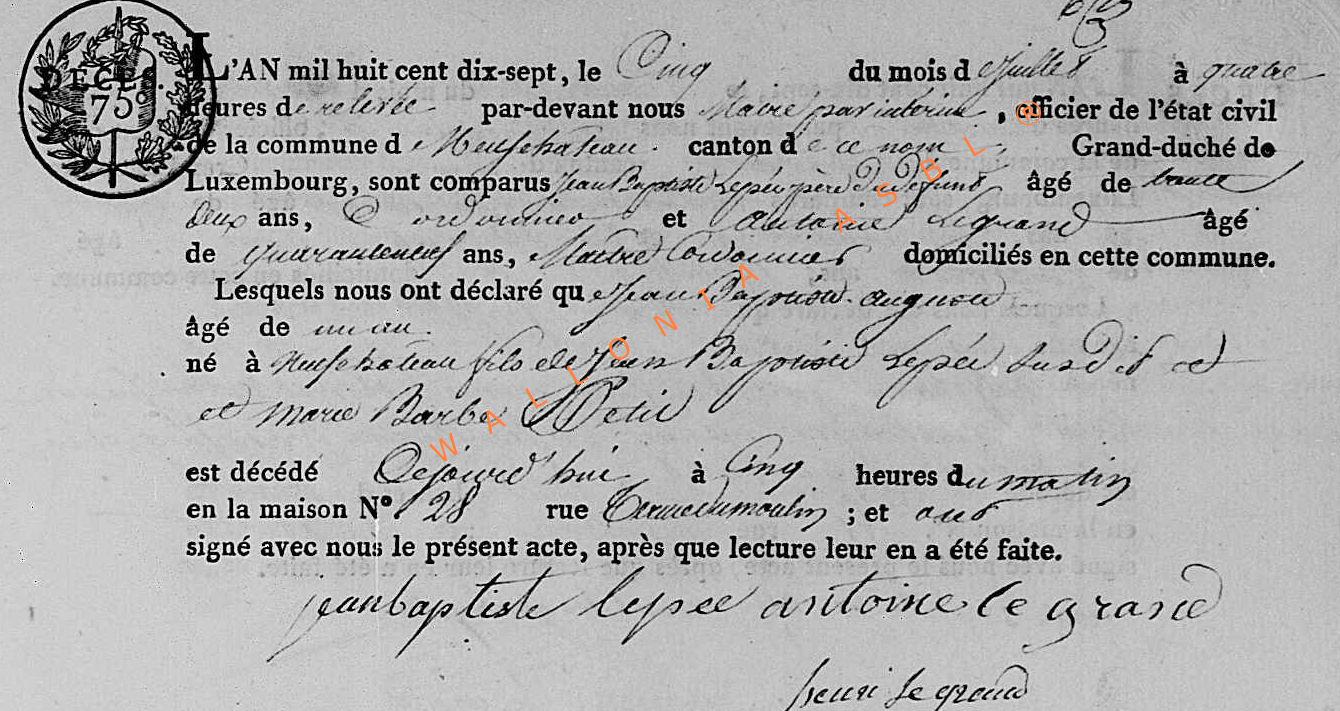 DÉCÈS.
75c
L'AN mil huit cent dix-sept, le Cinq du mois de juillet à quatre
heures de relevée par-devant nous Maire par interim, officier de l'état civil
de la commune de Neufchateau. canton de ce nom, Grand-duché de
Luxembourg, sont comparus Jean Baptiste Lepée père du defunt âgé de trente
deux ans, Cordonnier et Antoine Legrand âgé
de quaranteneuf ans, Maitre Cordonnier domiciliés en cette commune.
Lesquels nous ont déclaré que Jean Baptiste auguste
âgé de un an.
né à Neufchateau fils de Jean Baptiste Lepée susdit et
et Marie Barbe Petit
est décédé Cejourd'hui à Cinq heures du matin
en la maison N° 28 rue du moulin ; et ont
signé avec nous le présent acte, après que lecture leur en a été faite.
jean baptiste lepee antoine le grand
henri le grand
WALLONIA ASBL ©